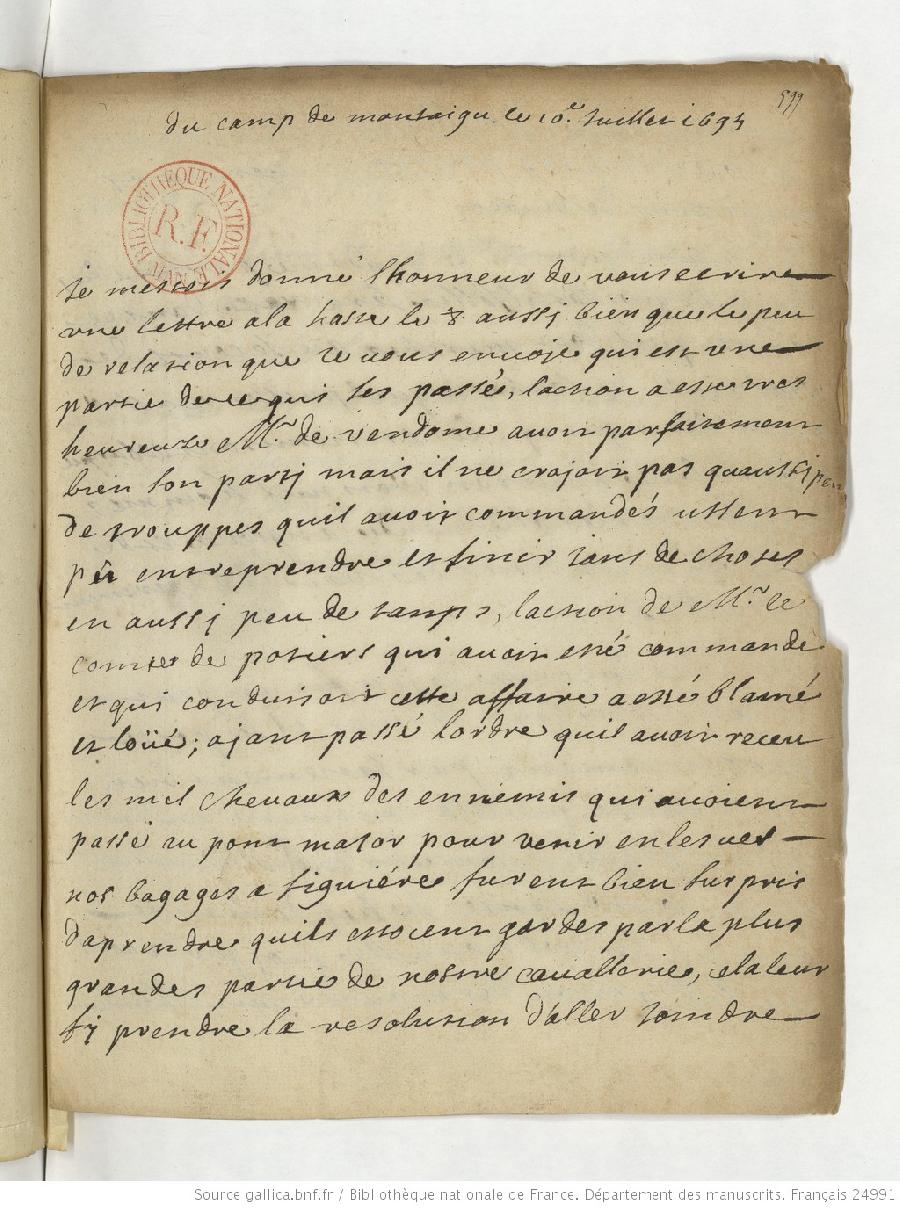 599
du camp de montaigu le 10.e Juillet 1695
BIBLIOTHEQUE NATIONALE MAN.
R.F.
Je mestois donné lhonneur de vous ecrire
vne lettre ala haste le 8 aussj bien que le peu
de relasion que ie vous enuoje qui est vne
partie dece qui ses passé, lacsion a este tres
heureuse Mr. de vendome auoit parfaitemens
bien son partj mais il ne crajoit pas quaussj peu
de trouppes quil auoit commandés ussent
pû entreprendre et finir tans de choses
en aussj peu de tamps, lacsion de Mr. le
comte de potiers qui auoit esté commandé
et qui conduisoit cette affaire a esté blamé
et loüé; ajant passé lordre quil auoit receu
les mil cheuaux des ennemis qui auoient
passé au pont major pour venir enleuer
nos bagages a figuiére furent bien surpris
daprendre quils estoient gardes par la plus
grandes partie de nostre cauallerie, cela leur
fj prendre la resolusion d'aller joindre
Source gallica.bnf.fr / Bibliothèque nationale de France. Département des manuscrits. Français 24991